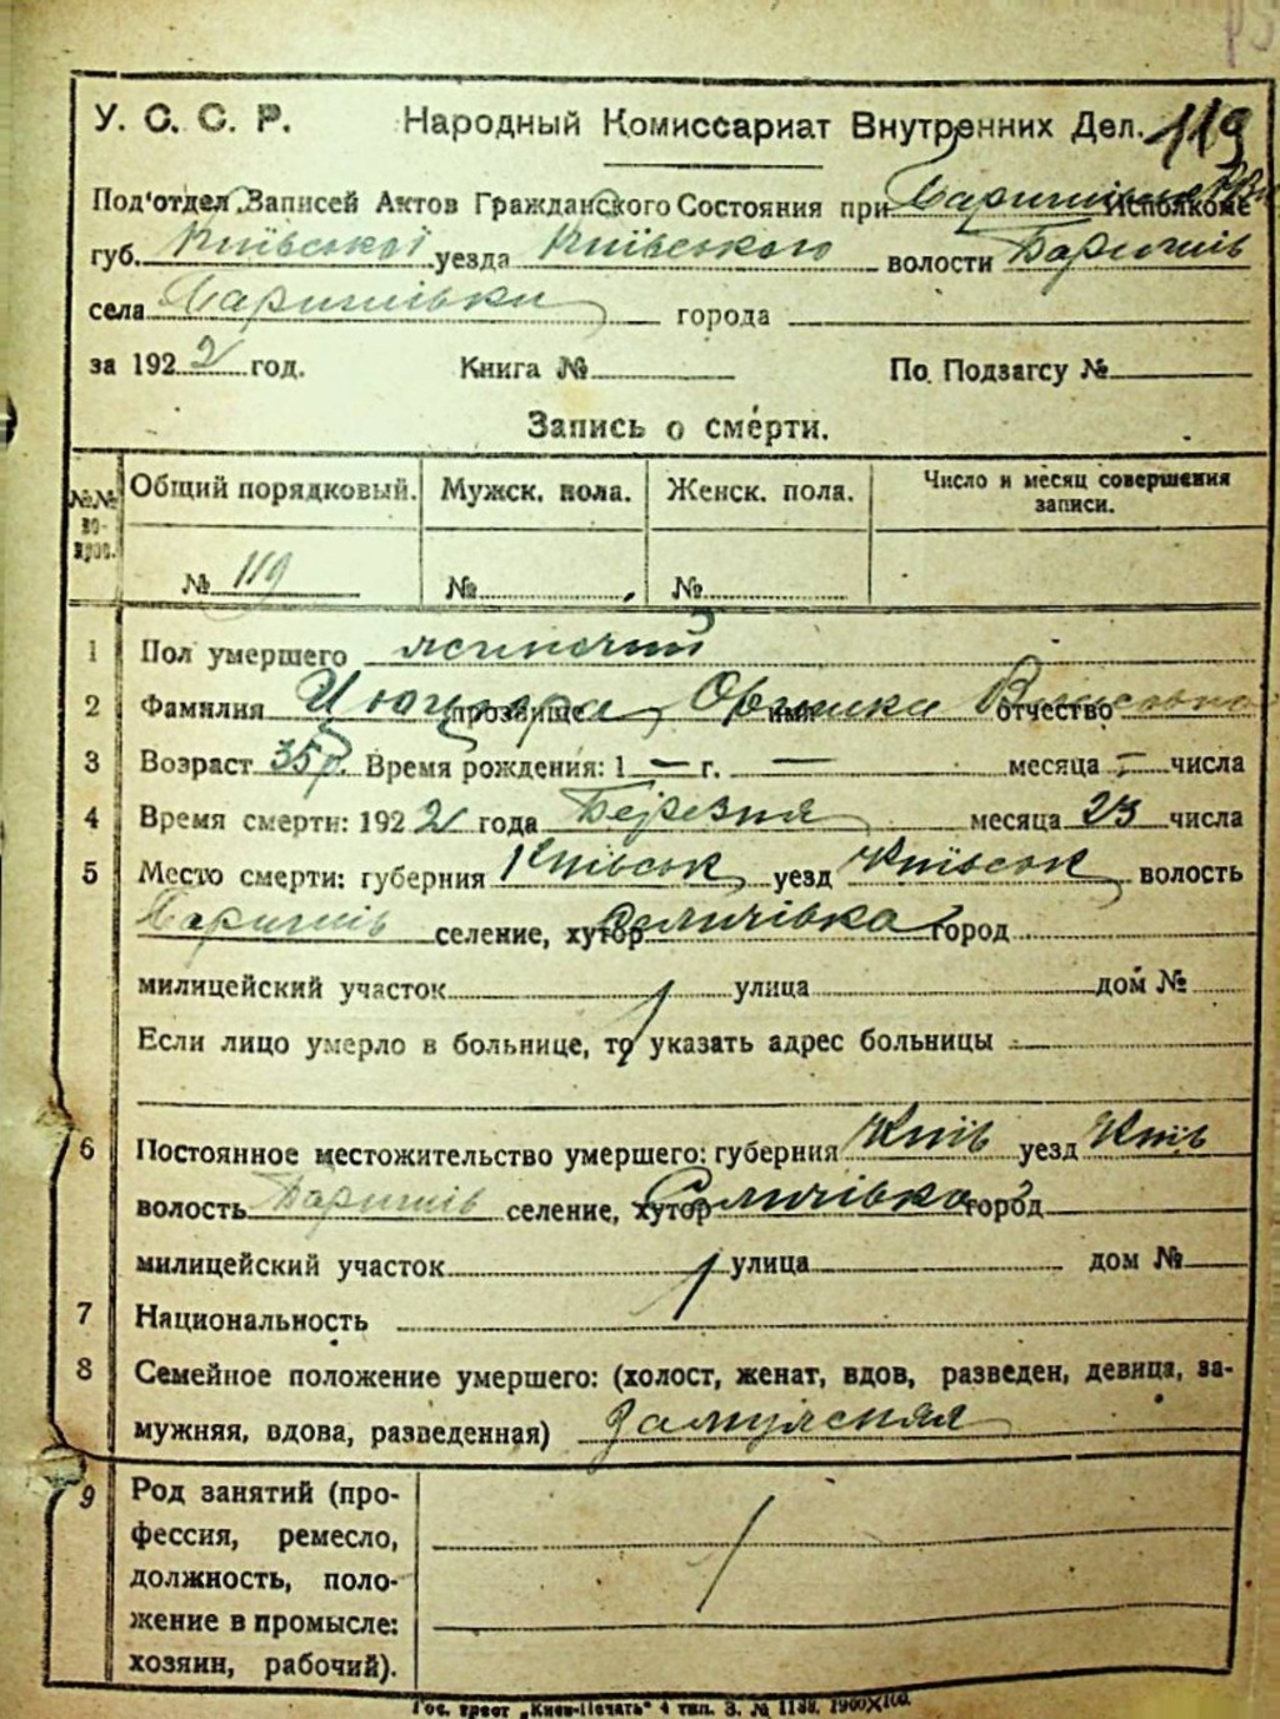 119
У. С. С. Р. Народный Комиссариат Внутренних Дел.
Под'отдел Записей Актов Гражданского Состояния при Исполкоме
губ. Київської уезда Київського волости Баришів
села Баришівки города
за 1922 год. Книга № По Подзагсу №
Запись о смерти.
№№ во- прос. Общий порядковый. Мужск. пола. Женск. пола. Число и месяц совершения записи.
№ 119 № №
1 Пол умершего жиночий
2 Фамилия прозвище имя отчество
3 Возраст 35 р. Время рождения: 1 — г. — месяца — числа
4 Время смерти: 1922 года Березня месяца 23 числа
5 Место смерти: губерния Київськ уезд Київськ волость
Баришів селение, хутор Селичівка город
милицейский участок улица дом №
Если лицо умерло в больнице, то указать адрес больницы
6 Постоянное местожительство умершего: губерния Київ уезд Київ
волость Баришів селение, хутор Селичівка город
милицейский участок улица дом №
7 Национальность
8 Семейное положение умершего: (холост, женат, вдов, разведен, девица, за-
мужняя, вдова, разведенная) Замужняя
9 Род занятий (про-
фессия, ремесло,
должность, поло-
жение в промысле:
хозяин, рабочий).
Гос. трест „Киев-Печать" 4 тип. З. № 1138. 1900×100.